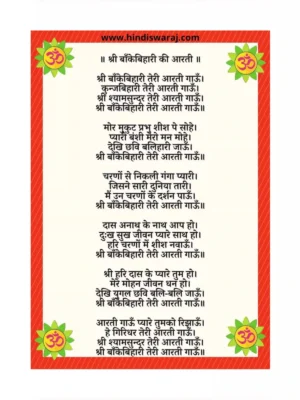 www.hindiswaraj.com
॥ श्री बाँकेबिहारी की आरती ॥
श्री बाँकेबिहारी तेरी आरती गाऊँ।
कुन्जबिहारी तेरी आरती गाऊँ।
श्री श्यामसुन्दर तेरी आरती गाऊँ।
श्री बाँकेबिहारी तेरी आरती गाऊँ॥
मोर मुकुट प्रभु शीश पे सोहे।
प्यारी बंशी मेरो मन मोहे।
देखि छवि बलिहारी जाऊँ।
श्री बाँकेबिहारी तेरी आरती गाऊँ॥
चरणों से निकली गंगा प्यारी।
जिसने सारी दुनिया तारी।
मैं उन चरणों के दर्शन पाऊँ।
श्री बाँकेबिहारी तेरी आरती गाऊँ॥
दास अनाथ के नाथ आप हो।
दुःख सुख जीवन प्यारे साथ हो।
हरि चरणों में शीश नवाऊँ।
श्री बाँकेबिहारी तेरी आरती गाऊँ॥
श्री हरि दास के प्यारे तुम हो।
मेरे मोहन जीवन धन हो।
देखि युगल छवि बलि-बलि जाऊँ।
श्री बाँकेबिहारी तेरी आरती गाऊँ॥
आरती गाऊँ प्यारे तुमको रिझाऊँ।
हे गिरिधर तेरी आरती गाऊँ।
श्री श्यामसुन्दर तेरी आरती गाऊँ।
श्री बाँकेबिहारी तेरी आरती गाऊँ॥